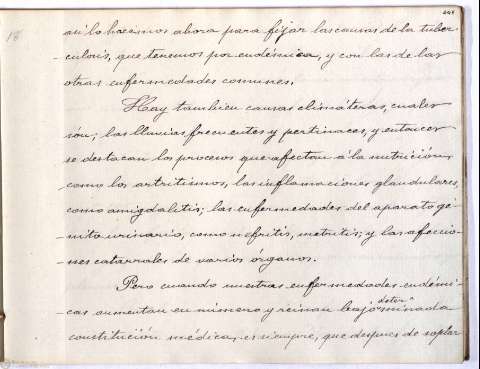 18
así lo hacemos ahora para fijar las causas de la tuber-
culosis, que tenemos por endémica, y con las de las
otras enfermedades comunes.
Hay tambien causas climáteras, cuales
són; las lluvias frecuentes y pertinaces, y entonces
se destacan los procesos que afectan á la nutrición,
como los artritismos, las inflamaciones glandulares,
como amigdalitis; las enfermedades del aparato ge-
nito urinario, como nefritis, metritis; y las afeccio-
nes catarrales de varios órganos.
Pero cuando nuestras enfermedades endémi-
cas aumentan en número y reinan bajo determinada
constitución médica, es siempre, que despues de soplar